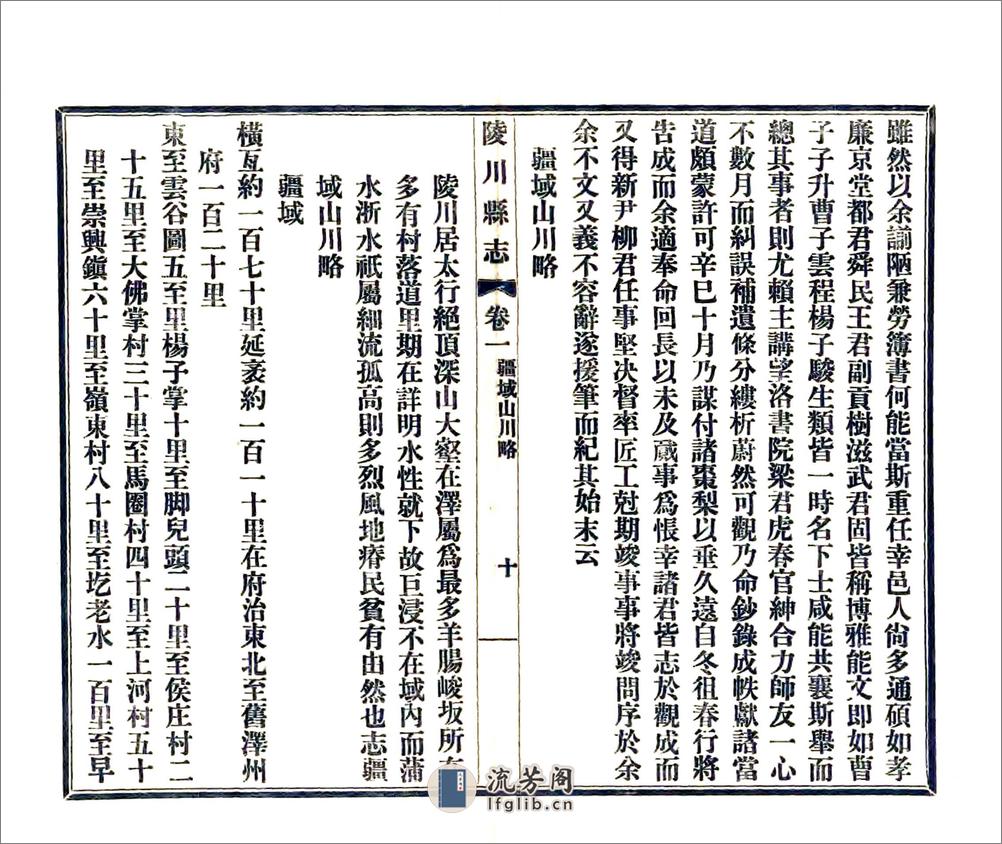 雖然以余謭陋兼勞簿書何能當斯重任幸邑人尙多通碩如孝
廉京堂都君舜民王君副貢樹滋武君固皆稱博雅能文即如曹
子子升曹子雲程楊子駿生類皆一時名下士咸能共襄斯舉而
總其事者則尤賴主講望洛書院梁君虎春官紳合力師友一心
不數月而糾誤補遺條分縷析蔚然可觀乃命鈔錄成帙獻諸當
道頗蒙許可辛巳十月乃謀付諸棗梨以垂久遠自冬徂春行將
告成而余適奉命回長以未及蕆事爲悵幸諸君皆志於觀成而
又得新尹柳君任事堅决督率匠工尅期竣事事將竣問序於余
余不文又義不容辭遂援筆而紀其始末云
疆域山川略
陵川縣志 卷一 疆域山川略 十
陵川居太行絕頂深山大壑在澤屬爲最多羊腸峻坂所在
多有村落道里期在詳明水性就下故巨浸不在域內而蒲
水淅水祇屬細流孤高則多烈風地瘠民貧有由然也志疆
域山川略
疆域
橫亙約一百七十里延袤約一百一十里在府治東北至舊澤州
府一百二十里
東至雲谷圖五至里楊子掌十里至脚兒頭二十里至侯庄村二
十五里至大佛掌村三十里至馬圈村四十里至上河村五十
里至崇興鎭六十里至嶺東村八十里至圪老水一百里至早
流芳阁
lfglib.cn